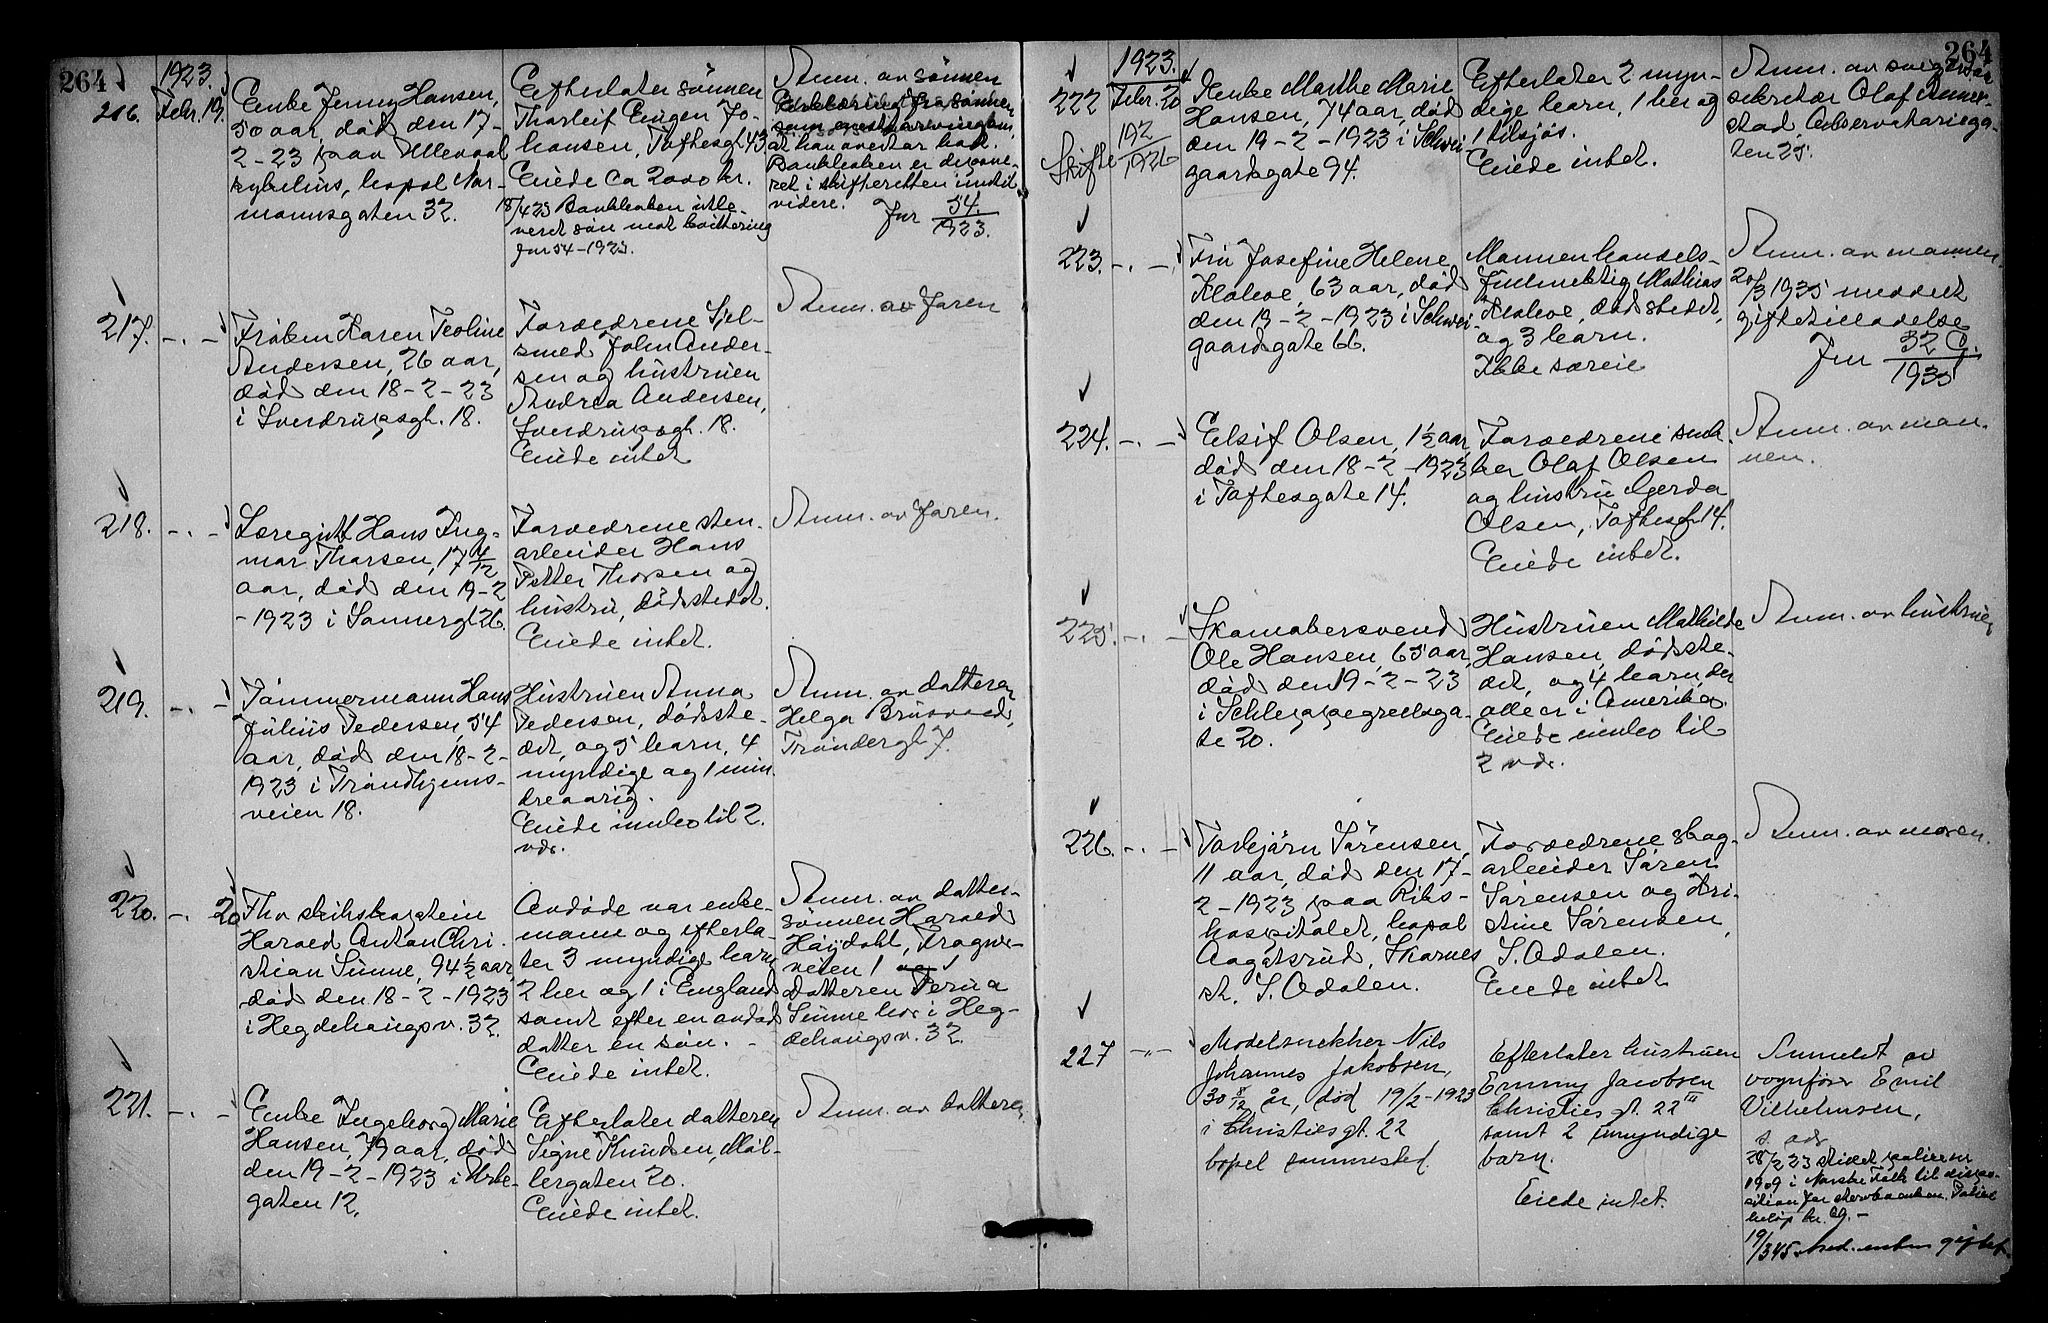 264
1923.
216. Febr. 19.
Enke Jenny Hansen,
50 aar, død den 17-
2-23 paa Ullevaal
sykehus, bopæl Nor-
mannsgaten 32.
Efterlater sønnen
Thorleif Eugen Jo-
hansen, Toftesgt 43
Eiede Ca 2000 kr.
18/4 23 Bankboken utle-
veret søn mot kvittering
Jnr 54-1923.
Anm. av sønnen
Erklæring fra sønnen
som enestearving om
at han overtar boet.
Bankboken er depone-
ret i skifteretten indtil
videre.
Jnr 54/1923.
217. -.-
Frøken Karen Teoline
Andersen, 26 aar,
død den 18-2-23
i Sverdrupsgt. 18.
Forældrene Sjel-
smed John Ander-
sen og hustruen
Andrea Andersen,
Sverdrupsgt. 18.
Eiede intet
Anm. av faren
218. -.-
Læregutt Hans Ing-
mar Thorsen, 17 4/12
aar, død den 19-2
-1923 i Sannergt 26.
Forældrene sten-
arbeider Hans
Petter Thorsen og
hustru, dødstedet.
Eiede intet.
Anm. av faren.
219. -.-
Tømmermann Hans
Julius Pedersen, 54
aar, død den 18-2-
1923 i Trondhjems-
veien 18.
Hustruen Anna
Pedersen, dødste-
det, og 5 barn, 4
myndige og 1 min-
dreaarig.
Eiede innbo til 2.
vdr.
Anm. av datteren
Helga Brusveed,
Trøndergt 7.
220. -. 20
Fhv skibskaptein
Harald Anton Chri-
stian Sinne, 94 1/2 aar,
død den 18-2-1923
i Hegdehaugsv. 32.
Avdøde var enke-
mann og efterla-
ter 3 myndige barn
2 her og 1 i England
samt efter en avdød
datter en søn. -
Eiede intet.
Anm. av datter-
sønnen Harald
Høydahl, Frogner-
veien 1
Datteren
Sinne bor i Heg-
dehaugsv. 32.
221. -.-
Enke Ingeborg Marie
Hansen, 79 aar, død
den 19-2-1923 i Urte-
gaten 12.
Efterlater datteren
Signe Knudsen, Møl-
lergaten 20.
Eiede intet.
Anm. av datteren
264
1923.
222 Febr. 20
Skifte 192/1926
Enke Marthe Marie
Hansen, 74 aar, død
den 19-2-1923 i Schwei-
gaardsgate 94.
Efterlater 2 myn-
dige barn, 1 her og
1 tilsjøs.
Eiede intet.
Anm. av svigersøn
sekretær Olaf Anner-
stad, Observatoriega-
ten 25.
223. -.-
Fru Josefine Helene
Kloboe, 63 aar, død
den 19-2-1923 i Schwei-
gaardsgate 66.
Mannen handels-
fuldmektig Mathias
Kloboe, dødstedet,
og 3 barn.
Ikke særeie
Anm. av mannen.
20/3 1935 meddelt
giftetilladelse
Jnr 32 G./1935
224. -.-
Elsif Olsen, 1 1/2 aar
død den 18-2-1923
i Toftesgate 14.
Forældrene snek-
ker Olaf Olsen
og hustru Gerda
Olsen, Toftesgt 14.
Eiede intet.
Anm. av man-
nen.
225. -.-
Skomakersvend
Ole Hansen, 65 aar,
død den 19-2-23
i Schleppegrellsga-
te 20.
Hustruen Mathilde
Hansen, dødste-
det, og 4 barn, der
alle er i Amerika.
Eiede innbo til
2 vdr.
Anm. av hustruen
226. -.-
Torbjørn Sørensen,
11 aar, død den 17-
2-1923 paa Riks-
hospitalet, bopæl
Aagotsrud, Skarnes
st. S. Odalen.
Forældrene skog-
arbeider Søren
Sørensen og Kri-
stine Sørensen,
S. Odalen.
Eiede intet
Anm. av moren.
227 -"-
Modelsnekker Nils
Johannes Jakobsen,
30 8/12 år, død 19/2-1923
i Christiesgt. 22
bopel sammested.
Efterlater hustruen
Emmy Jacobsen
Christies gt. 22 III
samt 2 umyndige
barn.
Eiede intet.
Anmeldt av
vognfører Emil
Vilhelmsen,
s. adr.
28/2 23 skiftet polise nr
1909 i Norske Folk til dispo-
sition for skrivbanken. Polise
beløp kr.
19/3 45 Med. enken giftet.